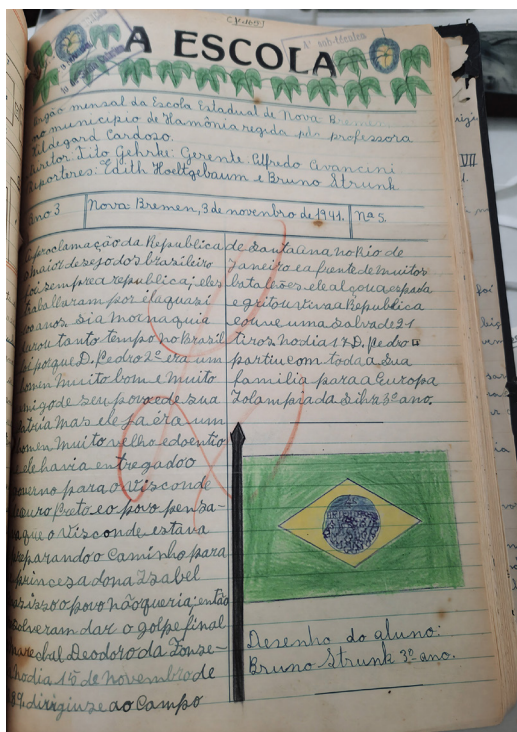 A ESCOLA
4º sub-técnica
Orgão mensal da Escola Estadual de Nova Bremen
no municipio de Hamônia regida por professora
Hildegard Cardozo.
Diretor: Tito Gehrke: Gerente: Alfredo Avancini
Reporteres: Edith Hoeltgebaum e Bruno Strunk
Ano 3
Nova Bremen, 3 de novembro de 1941.
Nº 5.
proclamação da Republica
maior desejo dos brasileiro
foi sempre a republica; eles
traballaram por ela quasi
100 anos. Si a mornaquia
durou tanto tempo no Brasil
foi porque D. Pedro 2º era um
homen muito bom e muito
amigo de seu povo e de sua
patria Mas ele ja éra um
homen muito velho e doentio
ele havia entregado o
governo para o Visconde
ouro Preto e o povo pensa-
que o Visconde estava
preparando o Caminho para
princesa dona Izabel
isso o povo não queria; então
resolveram dar o golpe final
Marechal Deodoro da Fonse-
no dia 15 de novembro de
dirigiuse ao Campo
de Santa Ana no Rio de
Janeiro e a frente de muitos
batalões ele alçou a espada
e gritou viva a Republica
e ouve uma salva de 21
tiros No dia 17 D. Pedro
partiu com toda a sua
familia para a Europa
da Silva 3º ano.
Desenho do aluno:
Bruno Strunk 3º ano.